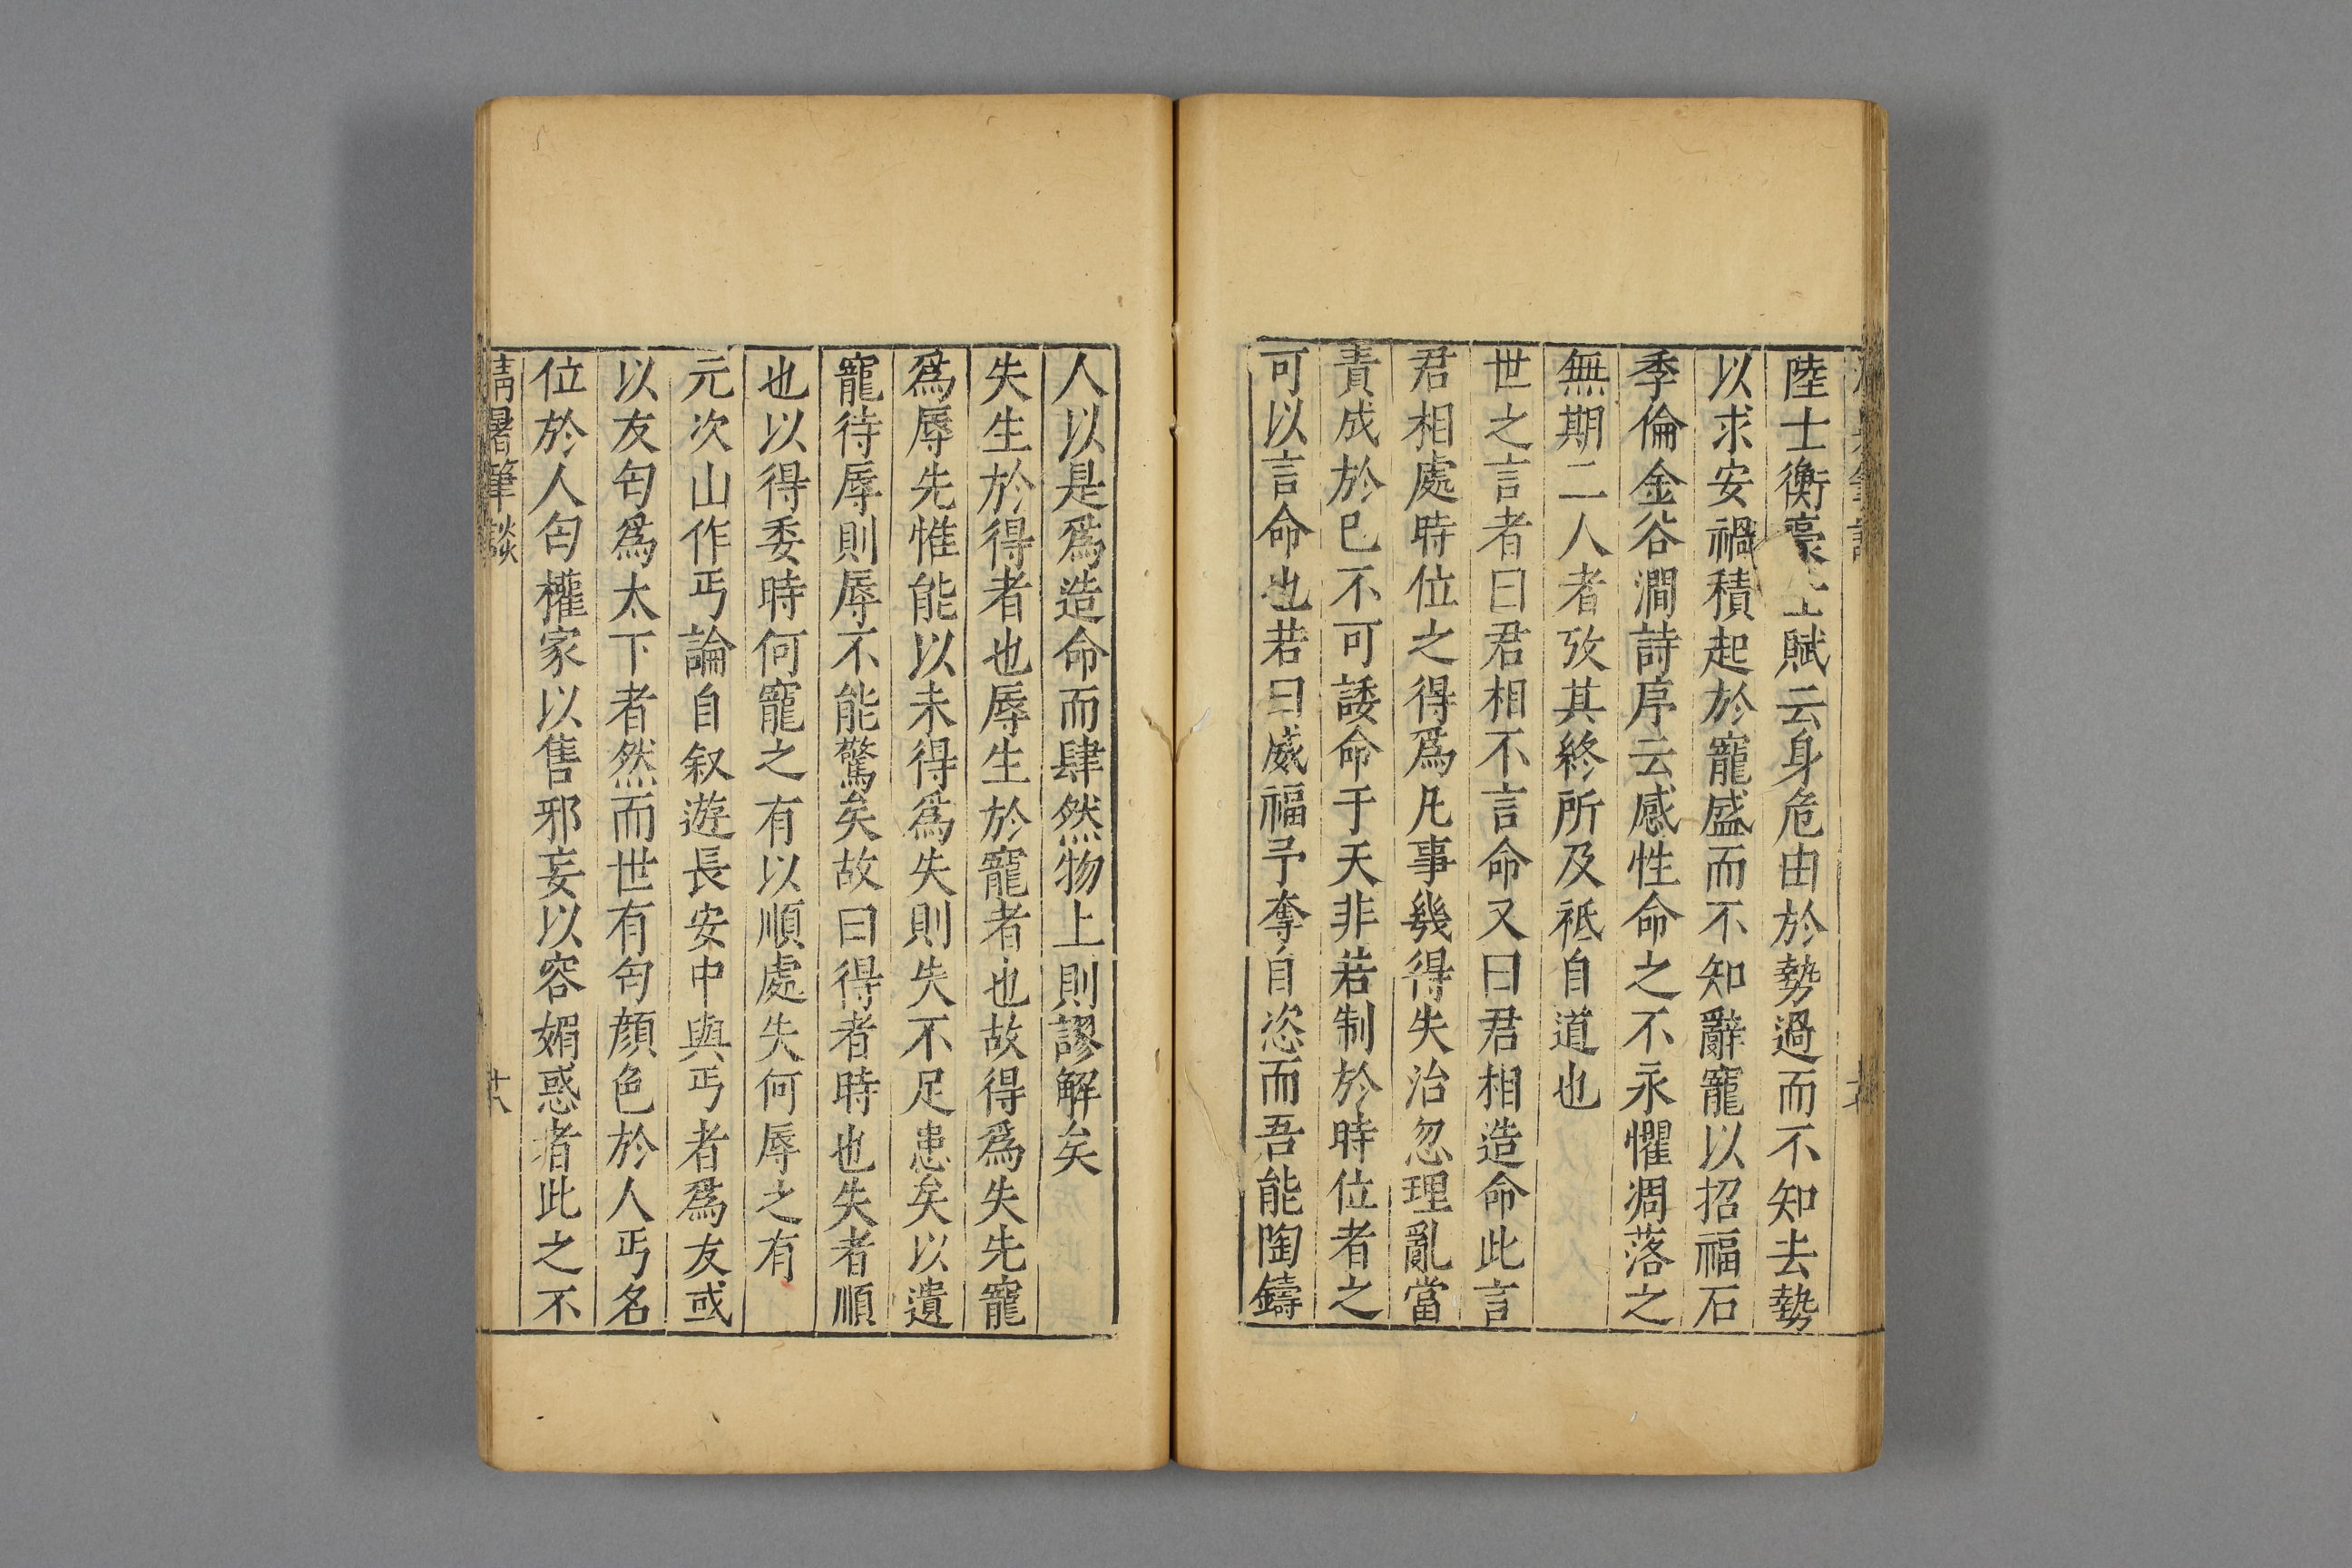 陸士衡豪士賦云身危由於勢過而不知去勢
以求安禍積起於寵盛而不知辭寵以招福石
季倫金谷澗詩序云感性命之不永懼凋落之
無期二人者攷其終所及祗自道也
世之言者曰君相不言命又曰君相造命此言
君相處時位之得爲凡事幾得失治忽理亂當
責成於巳不可諉命于天非若制於時位者之
可以言命也若曰威福予奪自恣而吾能陶鑄
人以是爲造命而肆然物上則謬解矣
失生於得者也辱生於寵者也故得爲失先寵
爲辱先惟能以未得爲失則失不足患矣以遺
寵待辱則辱不能驚矣故曰得者時也失者順
也以得委時何寵之有以順處失何辱之有
元次山作丐論自叙遊長安中與丐者爲友或
以友匄爲太下者然而世有匄顔色於人丐名
位於人匄權家以售邪妄以容媚惑者此之不
清暑筆談
廿八